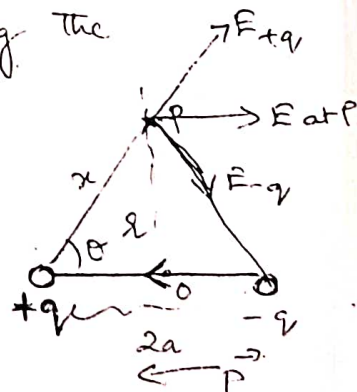 g The
E+q
P
E at P
E-q
x
θ
r
O
+q
-q
2a
P